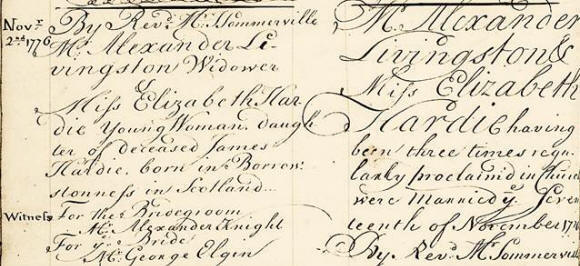 Novr. By Revd. Mr. Sommerville
2nd. 1776 Mr. Alexander Li-
vingston Widower
&
Miss Elizabeth Har
die Young Woman, daugh
ter of deceased James
Hardie, born in Borrow:
stonness in Scotland...
Witness For the Bridegroom
Mr. Alexander Knight
For ye. Bride
Mr. George Elgin
Mr. Alexander
Livingston &
Miss Elizabeth
Hardie having
been three times regu
larly proclaimd in Church
were Married ye. Seven
teenth of November 1776
By Revd. Mr. Sommerville